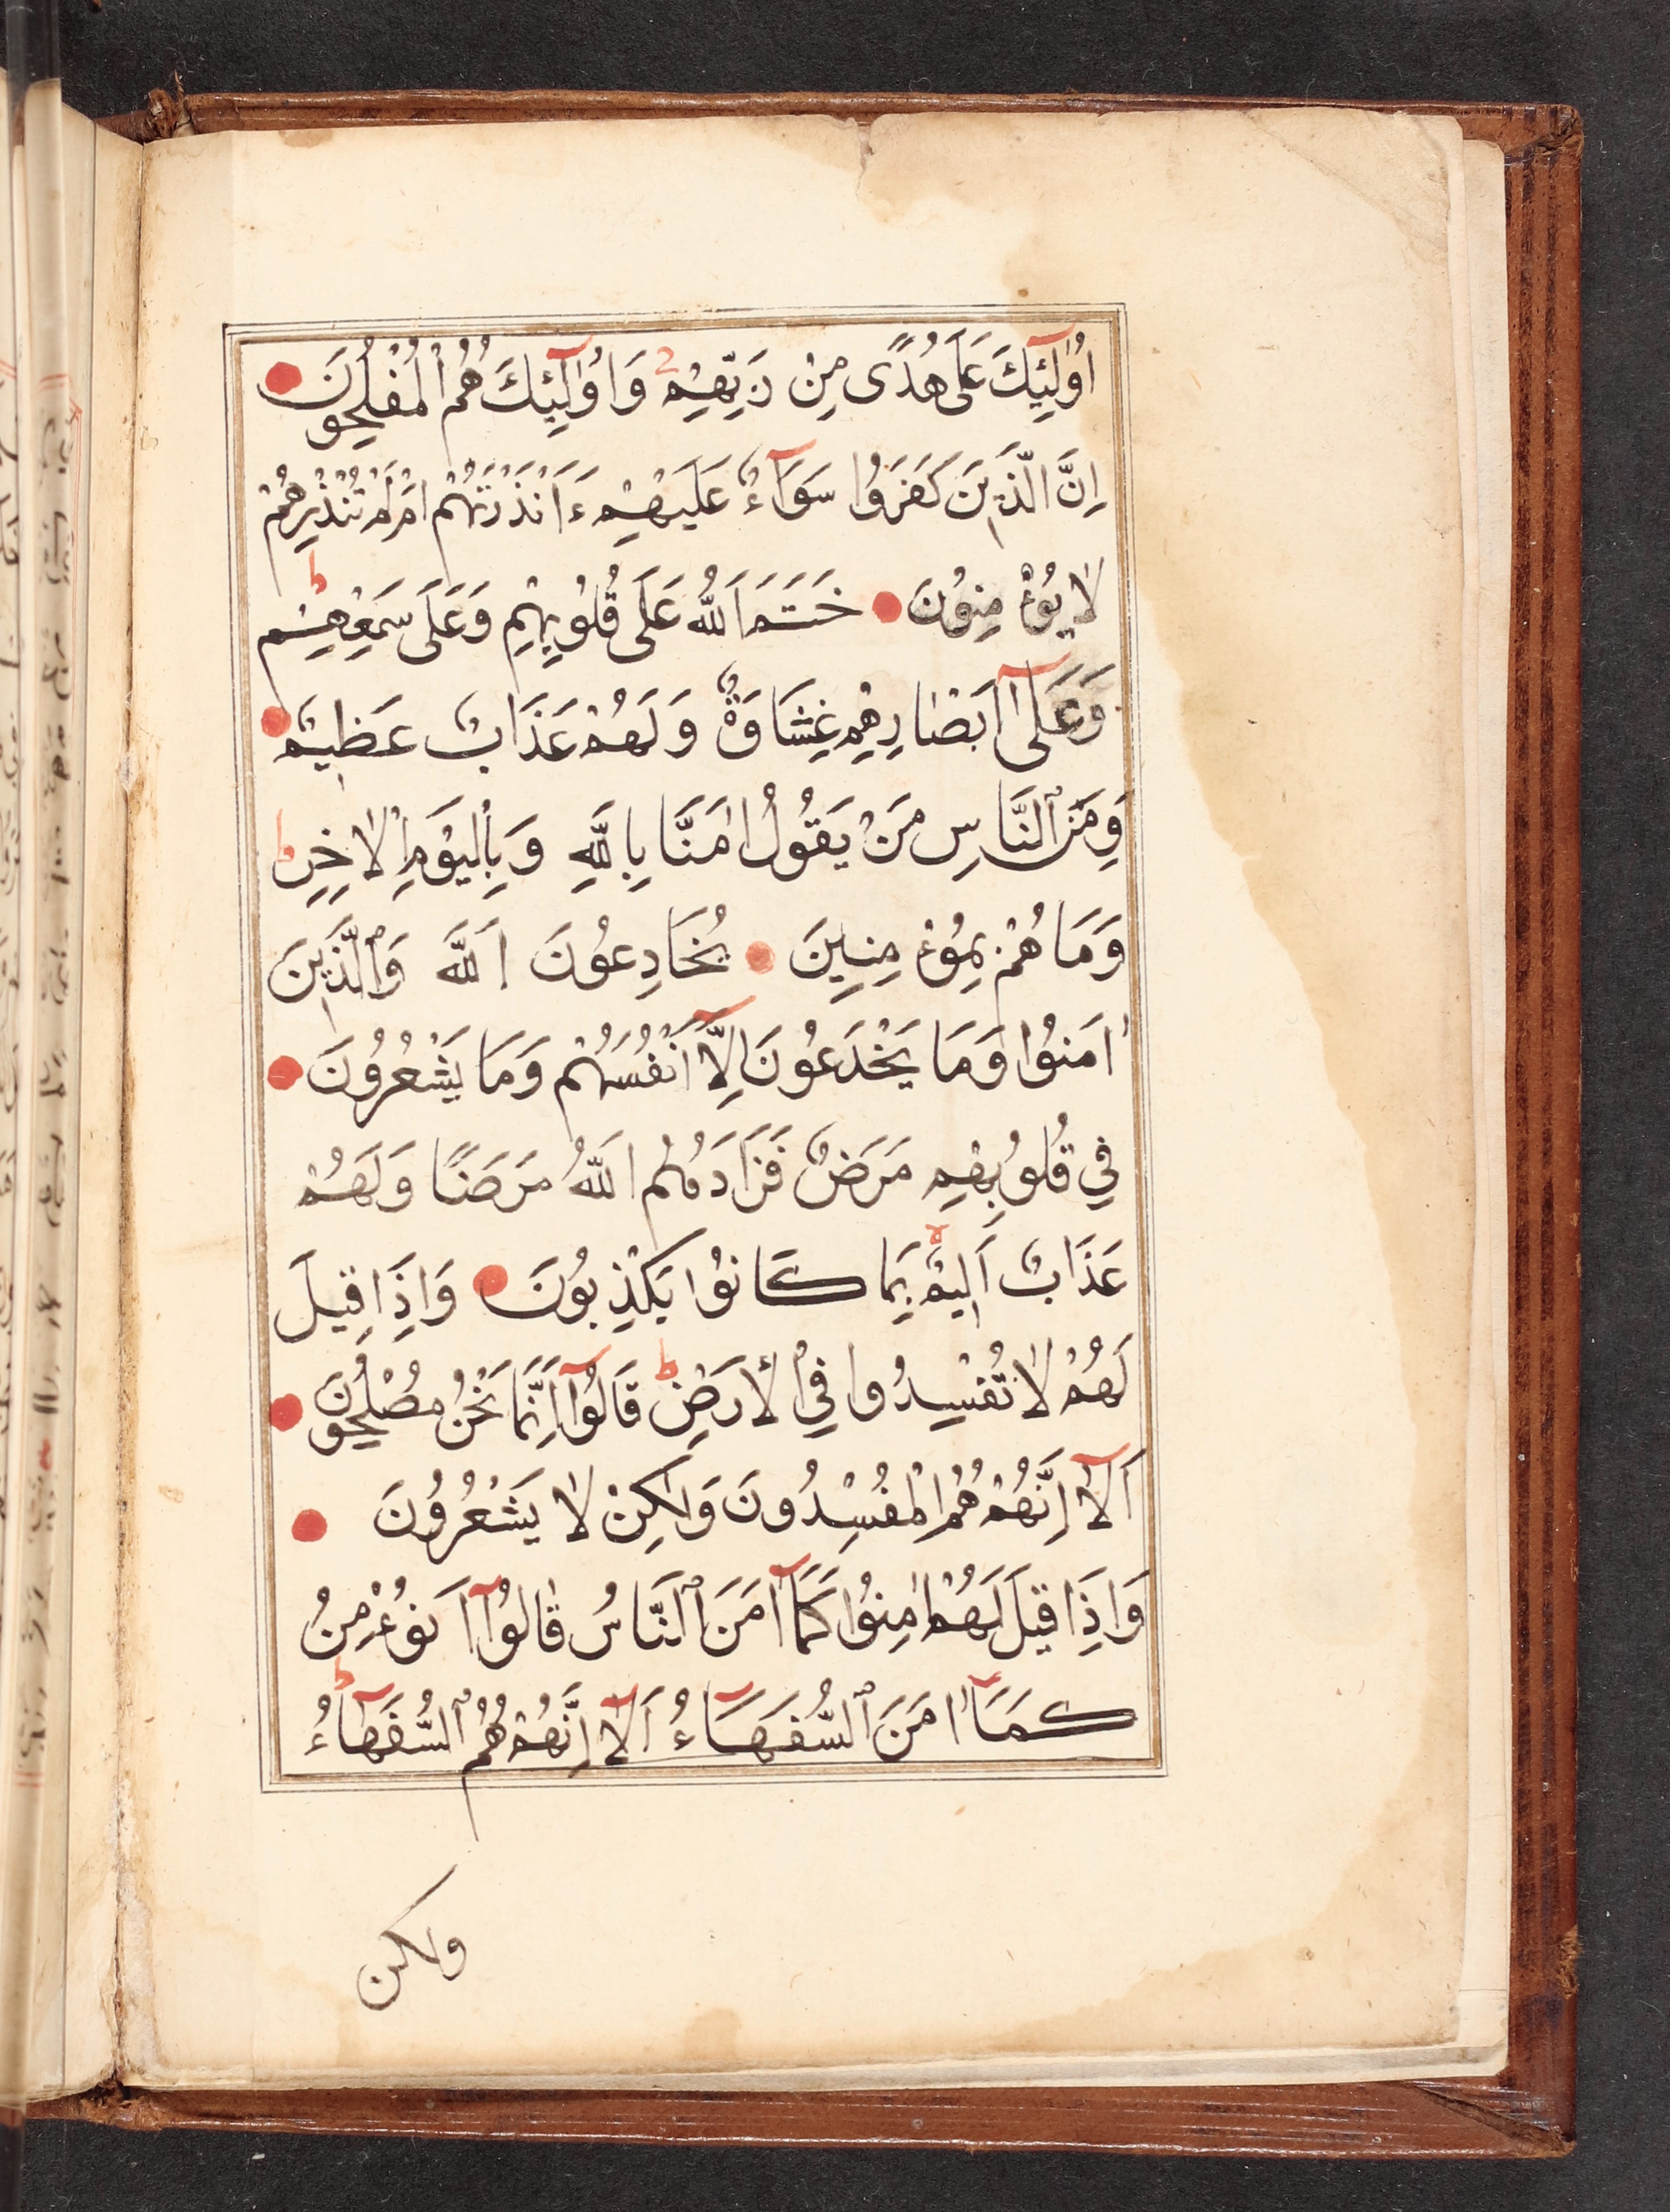 اُولٰٓئِكَ عَلٰى هُدًى مِنْ رَبِّهِمْ وَاُولٰٓئِكَ هُمُ الْمُفْلِحُونَ
اِنَّ الَّذِينَ كَفَرُوا سَوَآءٌ عَلَيْهِمْ ءَاَنْذَرْتَهُمْ اَمْ لَمْ تُنْذِرْهُمْ
لَا يُؤْمِنُونَ خَتَمَ اللّٰهُ عَلَى قُلُوبِهِمْ وَعَلَى سَمْعِهِمْ ط
وَعَلٰٓى اَبْصَارِهِمْ غِشَاوَةٌ وَلَهُمْ عَذَابٌ عَظِيمٌ
وَمِنَ النَّاسِ مَنْ يَقُولُ اٰمَنَّا بِاللّٰهِ وَبِالْيَوْمِ الْاٰخِرِ ط
وَمَا هُمْ بِمُؤْمِنِينَ يُخَادِعُونَ اللّٰهَ وَالَّذِينَ
اٰمَنُوا وَمَا يَخْدَعُونَ اِلَّآ اَنْفُسَهُمْ وَمَا يَشْعُرُونَ
فِي قُلُوبِهِمْ مَرَضٌ فَزَادَهُمُ اللّٰهُ مَرَضًا وَلَهُمْ
عَذَابٌ اَلِيمٌ بِمَا كَانُوا يَكْذِبُونَ وَاِذَا قِيلَ
لَهُمْ لَا تُفْسِدُوا فِي الْاَرْضِ ط قَالُوٓا اِنَّمَا نَحْنُ مُصْلِحُونَ
اَلَآ اِنَّهُمْ هُمُ الْمُفْسِدُونَ وَلٰكِنْ لَا يَشْعُرُونَ
وَاِذَا قِيلَ لَهُمْ اٰمِنُوا كَمَآ اٰمَنَ النَّاسُ قَالُوٓا اَنُؤْمِنُ
كَمَآ اٰمَنَ السُّفَهَآءُ اَلَآ اِنَّهُمْ هُمُ السُّفَهَآءُ ط
ولكن